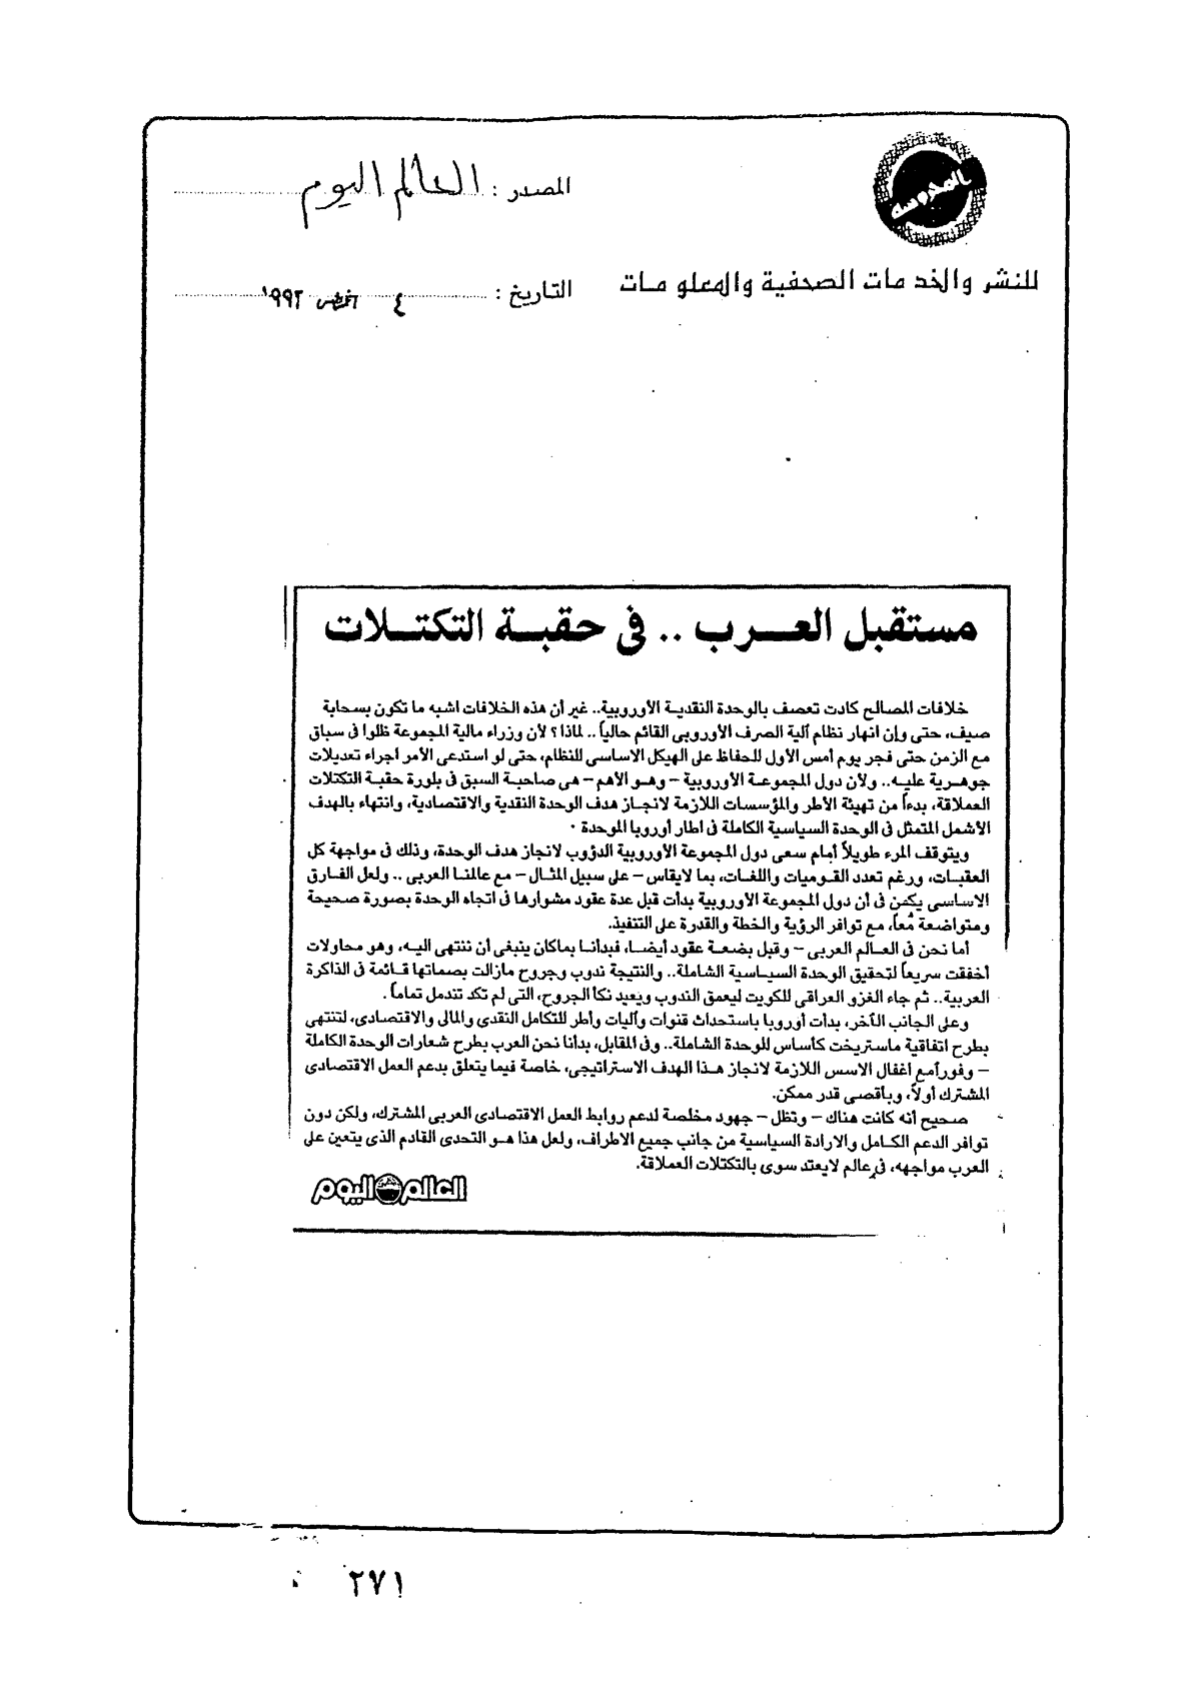 المحروسة
للنشر والخدمات الصحفية والمعلومات
المصدر : العالم اليوم
التاريخ : ٤ أغسطس ١٩٩٣
مستقبل العرب .. فى حقبة التكتلات
خلافات المصالح كادت تعصف بالوحدة النقدية الأوروبية.. غير أن هذه الخلافات اشبه ما تكون بسحابة
صيف، حتى وإن انهار نظام آلية الصرف الأوروبى القائم حالياً .. لماذا ؟ لأن وزراء مالية المجموعة ظلوا فى سباق
مع الزمن حتى فجر يوم أمس الأول للحفاظ على الهيكل الاساسى للنظام، حتى لو استدعى الأمر أجراء تعديلات
جوهرية عليه.. ولأن دول المجموعة الأوروبية – وهو الأهم – هى صاحبة السبق فى بلورة حقبة التكتلات
العملاقة، بدءاً من تهيئة الأطر والمؤسسات اللازمة لانجاز هدف الوحدة النقدية والاقتصادية، وانتهاء بالهدف
الأشمل المتمثل فى الوحدة السياسية الكاملة فى اطار أوروبا الموحدة .
ويتوقف المرء طويلاً أمام سعى دول المجموعة الأوروبية الدؤوب لانجاز هدف الوحدة، وذلك فى مواجهة كل
العقبات، ورغم تعدد القوميات واللغات، بما لايقاس – على سبيل المثال – مع عالمنا العربى .. ولعل الفارق
الاساسى يكمن فى أن دول المجموعة الأوروبية بدأت قبل عدة عقود مشوارها فى اتجاه الوحدة بصورة صحيحة
ومتواضعة معاً، مع توافر الرؤية والخطة والقدرة على التنفيذ.
أما نحن فى العالم العربى – وقبل بضعة عقود أيضا، فبدأنا بماكان ينبغى أن ننتهى اليه، وهو محاولات
أخفقت سريعاً لتحقيق الوحدة السياسية الشاملة.. والنتيجة ندوب وجروح مازالت بصماتها قائمة فى الذاكرة
العربية.. ثم جاء الغزو العراقى للكويت ليعمق الندوب ويعيد نكأ الجروح، التى لم تكد تندمل تماماً .
وعلى الجانب الآخر، بدأت أوروبا باستحداث قنوات وآليات وأطر للتكامل النقدى والمالى والاقتصادى، لتنتهى
بطرح اتفاقية ماستريخت كأساس للوحدة الشاملة.. وفى المقابل، بدانا نحن العرب بطرح شعارات الوحدة الكاملة
– وفوراًمع اغفال الاسس اللازمة لانجاز هذا الهدف الاستراتيجى، خاصة فيما يتعلق بدعم العمل الاقتصادى
المشترك أولاً، وبأقصى قدر ممكن.
صحيح أنه كانت هناك – وتظل – جهود مخلصة لدعم روابط العمل الاقتصادى العربى المشترك، ولكن دون
توافر الدعم الكامل والارادة السياسية من جانب جميع الاطراف، ولعل هذا هو التحدى القادم الذى يتعين على
العرب مواجهه، فى عالم لايعتد سوى بالتكتلات العملاقة.
العالم اليوم
٢٧١